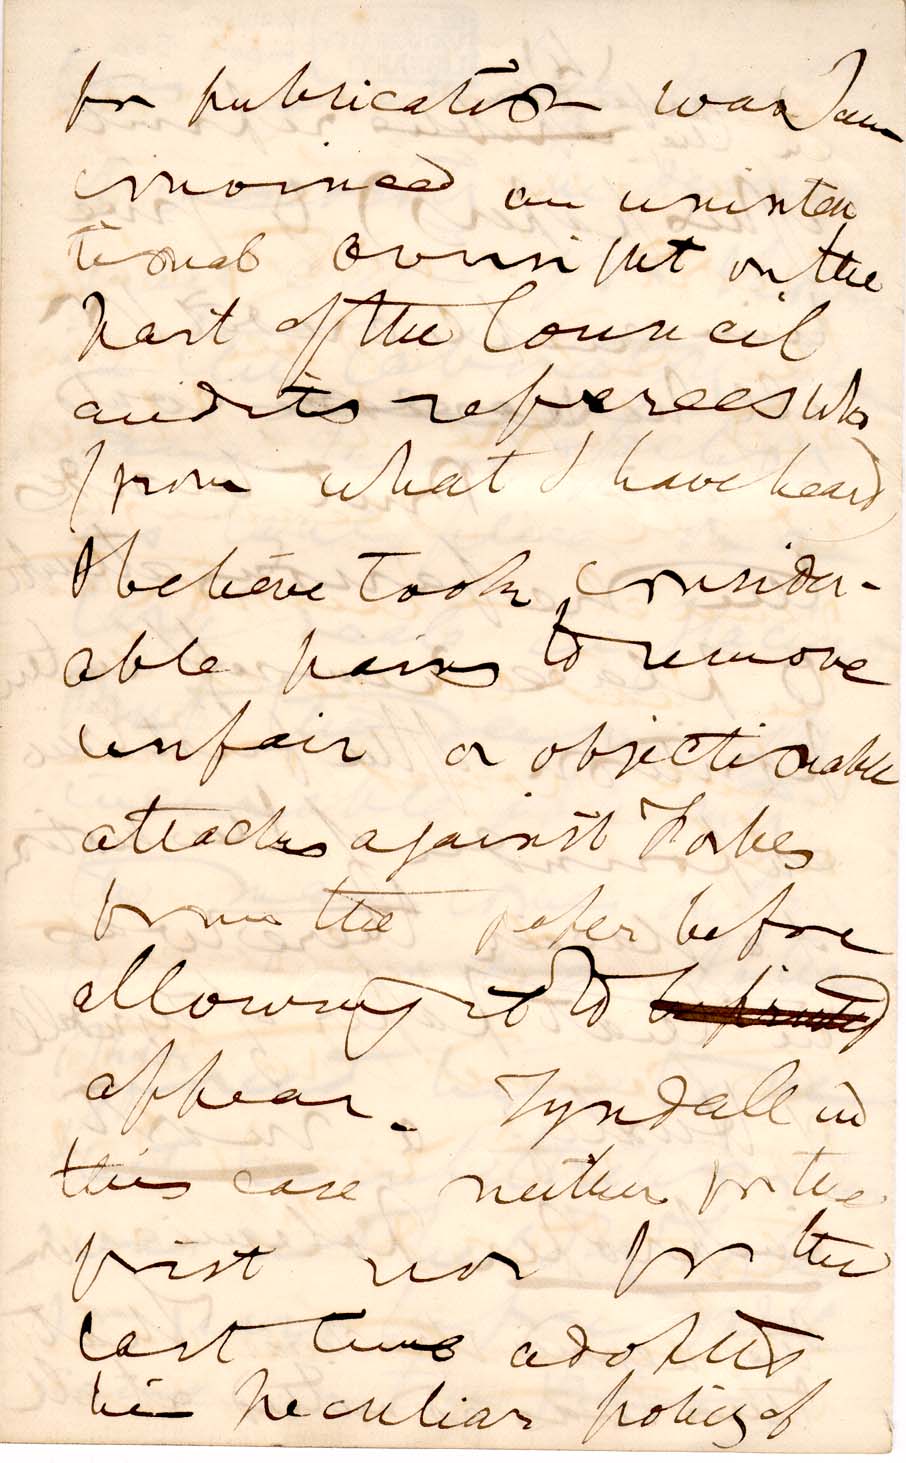 for publication was I am
convinced an uninten
tional oversight on the
part of the Council
and its referees who
(from what I have heard)
I believe took consider-
able pains to remove
unfair or objectionable
attacks against Forbes
from the paper before
allowing it to be printed
appear. Tyndall in
this case neither for the
first nor for the
last time adopted
his peculiar policy of